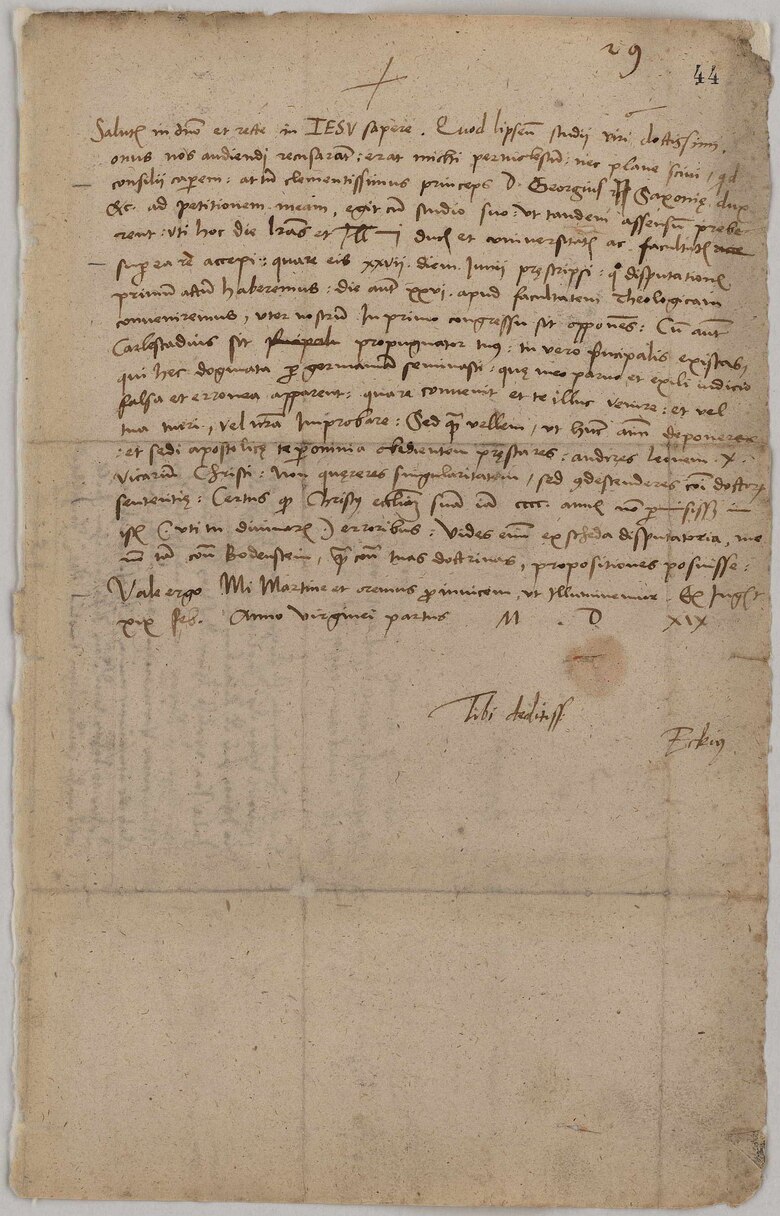 29
44
Salutē in dn̄o et recte in IESV sapere. Quod lipsen̄ studii viri doctissimi
onus nos audiendi recusarāt: erat michi permolestū: nec plane scivi, qd
consilii caperem: at tū clementissimus princeps D. Georgius Saxonię dux
&c. ad petitionem meam, egit cū studio suo: ut tandem assensū prebe
rent: uti hoc die lr̄as et duc̄ et vniversitat̄ ac facultat̄
sup ea rē accepi: quare eis xxvii. diem Iunii pręscripsi: qͦ disputationē
primum actū haberemus: die aūt xxvi. apud facultatem Theologicam
conveniremus, uter nostrū In primo congressu sit opponēs: Cū aūt
Carlestadius sit propugnator tuus: tu vero principalis existas,
qui hec dogmata p germaniā seminasti: quę meo parvo et exili iudicio
falsa et erronea apparent: quare convenit et te illuc venire: et vel
tua tueri, vel nr̄a Improbare: Sed qͣ vellem, ut hūc anīm deponeres
: et sedi apostolicę te p omnia obedientem pręstares: audires leonem X.
vicarium Christi: Non quęreres singularitatem, sed condescenderes cōi doctorꝝ
sententię: Certus qͫ Christus ecclīam suā iā cccc. annis nō pmisisset in
isͭ (uti tu divinares) erroribus: Vides enī ex scheda disputatoria, me
nō tā con̄ Bodenstein, qͣ con̄ tuas doctrinas, propositiones posuisse:
Vale ergo Mi Martine et oremus p invicem, ut Illuminemur. Ex Ingͭ
xix feb. Anno virginei partus M . D XIX
Tibi deditiss
Eckius